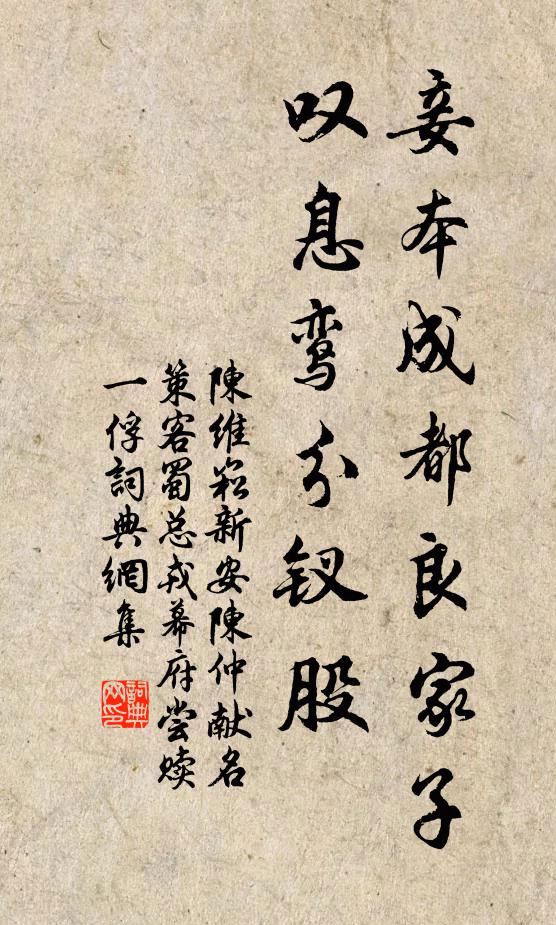 妾本成都良家子
叹息鸾分钗股
陳維崧新安陳仲献名
策客蜀总戎幕府尝赎
一俘詞典網集
詞典
网印